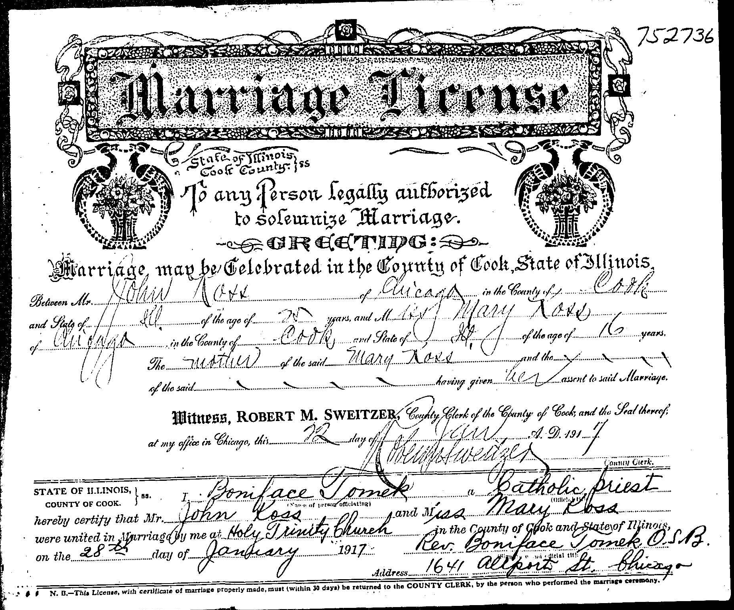 752736
Marriage License
State of Illinois, Cook County. } ss
To any Person legally authorized
to solemnize Marriage.
GREETING:
Marriage, may be Celebrated in the County of Cook, State of Illinois,
Between Mr. John Koss of Chicago in the County of Cook
and State of Ill. of the age of years, and Miss Mary Koss
of Chicago in the County of Cook and State of Ill of the age of 16 years.
The mother of the said Mary Koss and the
of the said having given her assent to said Marriage.
Witness, ROBERT M. SWEITZER, County Clerk of the County of Cook, and the Seal thereof,
at my office in Chicago, this 22 day of Jan A. D. 1917
Robert M Sweitzer
County Clerk.
STATE OF ILLINOIS, COUNTY OF COOK. } ss. I Boniface Tomek a Catholic priest
(Name of person officiating) (Official title)
hereby certify that Mr. John Koss and Miss Mary Koss
were united in Marriage by me at Holy Trinity Church in the County of Cook and State of Illinois,
on the 28th day of January 1917. Rev. Boniface Tomek O.S.B.
Address 1641 Allport St. Chicago
N. B.—This License, with certificate of marriage properly made, must (within 30 days) be returned to the COUNTY CLERK, by the person who performed the marriage ceremony.